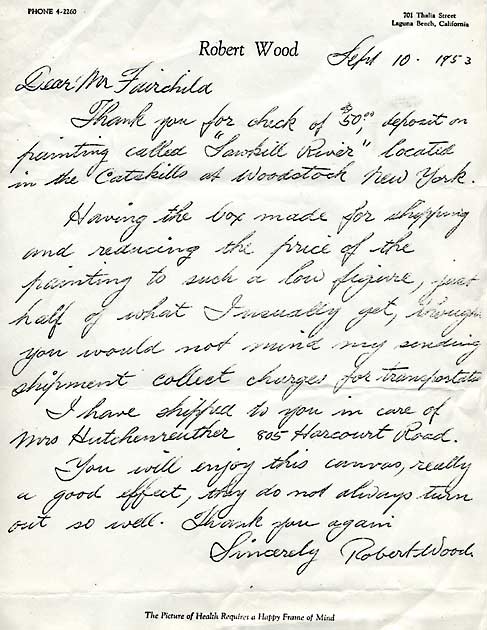 PHONE 4-2260
701 Thalia Street
Laguna Beach, California
Robert Wood
Sept 10 - 1953
Dear Mr Fairchild
Thank you for check of $50.00, deposit on
painting called "Sawkill River" located
in the Catskills at Woodstock New York.
Having the box made for shipping
and reducing the price of the
painting to such a low figure, just
half of what I usually get, though
you would not mind my sending
shipment collect charges for transportatio
I have shipped to you in care of
Mrs Hutchenreuther 805 Harcourt Road.
You will enjoy this canvas, really
a good effect, they do not always turn
out so well. Thank you again
Sincerely Robert Wood
The Picture of Health Requires a Happy Frame of Mind